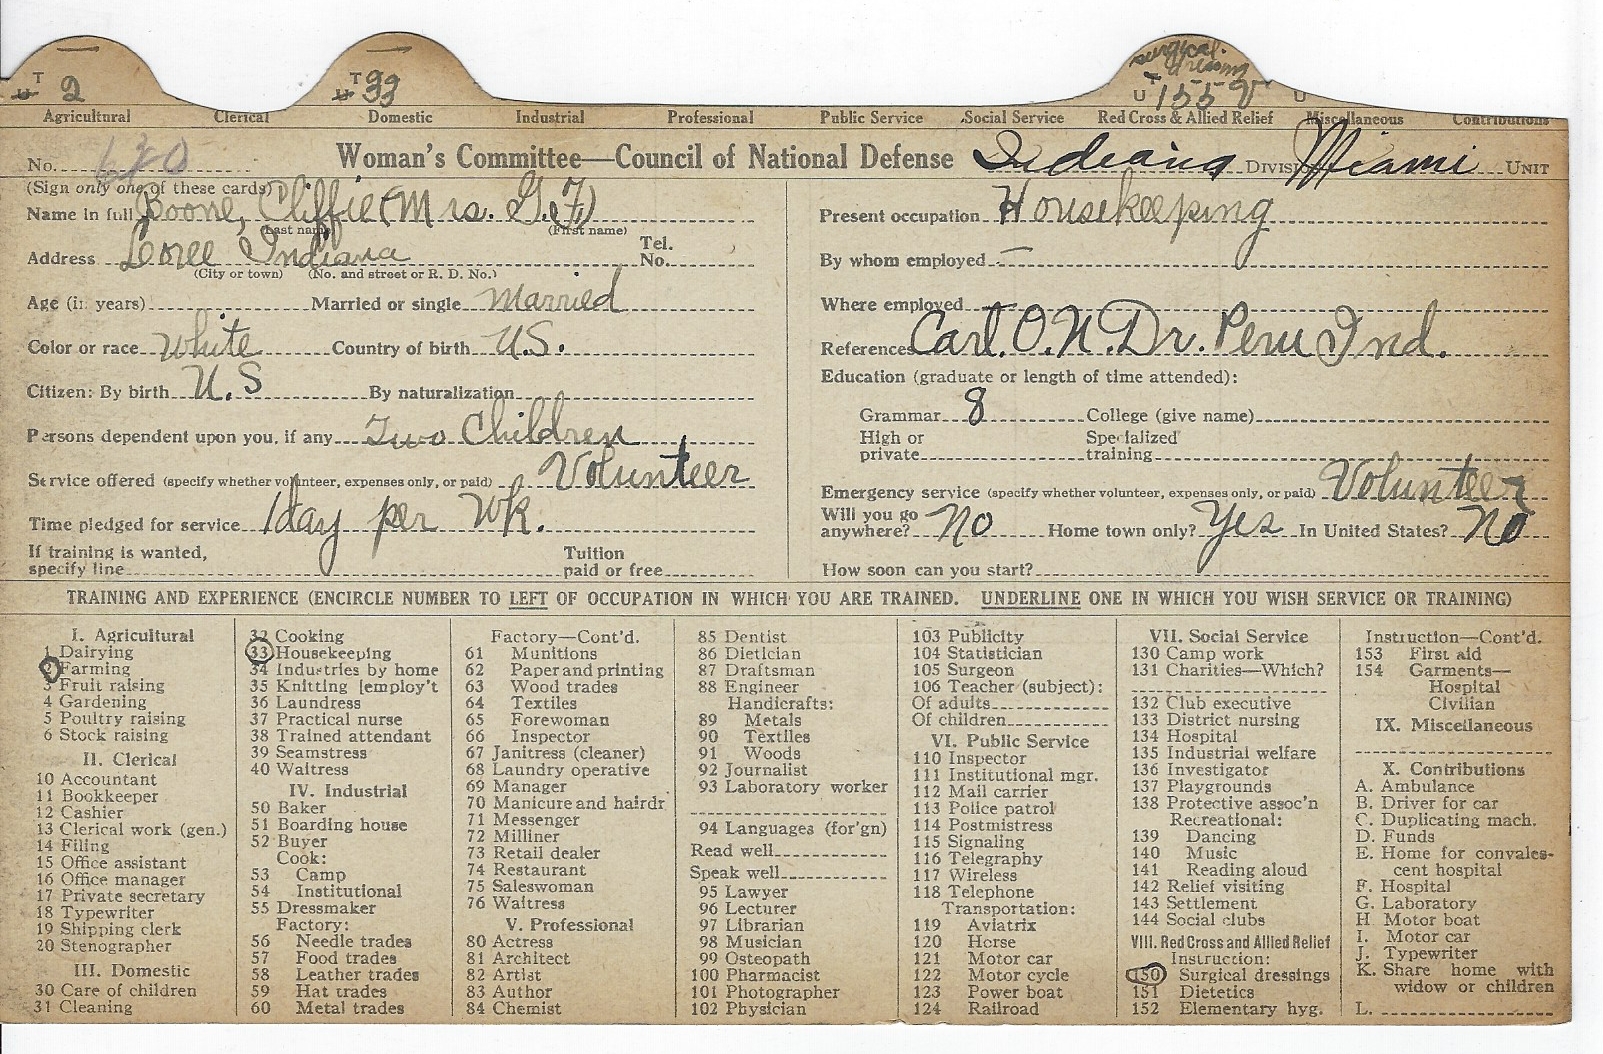 T U 2
T U 33
surgical dressing
U 155 V
U
Agricultural Clerical Domestic Industrial Professional Public Service Social Service Red Cross & Allied Relief Miscellaneous Contributions
No. 620 Woman's Committee—Council of National Defense Indiana DIVISION Miami UNIT
(Sign only one of these cards)
Name in full Boone, Cliffie (Mrs. G.F.)
(Last name) (First name)
Address Loree Indiana Tel. No.
(City or town) (No. and street or R. D. No.)
Age (in years) Married or single Married
Color or race White Country of birth U.S.
Citizen: By birth U.S By naturalization
Persons dependent upon you, if any Two Children
Service offered (specify whether volunteer, expenses only, or paid) Volunteer
Time pledged for service 1 day per Wk.
If training is wanted, specify line Tuition paid or free
Present occupation Housekeeping
By whom employed —
Where employed
References Carl. O.N. Dr. Peru Ind.
Education (graduate or length of time attended):
Grammar 8 College (give name)
High or private Specialized training
Emergency service (specify whether volunteer, expenses only, or paid) Volunteer
Will you go anywhere? No Home town only? Yes In United States? No
How soon can you start?
TRAINING AND EXPERIENCE (ENCIRCLE NUMBER TO LEFT OF OCCUPATION IN WHICH YOU ARE TRAINED. UNDERLINE ONE IN WHICH YOU WISH SERVICE OR TRAINING)
I. Agricultural
1 Dairying
2 Farming
3 Fruit raising
4 Gardening
5 Poultry raising
6 Stock raising
II. Clerical
10 Accountant
11 Bookkeeper
12 Cashier
13 Clerical work (gen.)
14 Filing
15 Office assistant
16 Office manager
17 Private secretary
18 Typewriter
19 Shipping clerk
20 Stenographer
III. Domestic
30 Care of children
31 Cleaning
32 Cooking
33 Housekeeping
34 Industries by home
35 Knitting [employ't
36 Laundress
37 Practical nurse
38 Trained attendant
39 Seamstress
40 Waitress
IV. Industrial
50 Baker
51 Boarding house
52 Buyer
Cook:
53 Camp
54 Institutional
55 Dressmaker
Factory:
56 Needle trades
57 Food trades
58 Leather trades
59 Hat trades
60 Metal trades
Factory—Cont'd.
61 Munitions
62 Paper and printing
63 Wood trades
64 Textiles
65 Forewoman
66 Inspector
67 Janitress (cleaner)
68 Laundry operative
69 Manager
70 Manicure and hairdr
71 Messenger
72 Milliner
73 Retail dealer
74 Restaurant
75 Saleswoman
76 Waitress
V. Professional
80 Actress
81 Architect
82 Artist
83 Author
84 Chemist
85 Dentist
86 Dietician
87 Draftsman
88 Engineer
Handicrafts:
89 Metals
90 Textiles
91 Woods
92 Journalist
93 Laboratory worker
94 Languages (for'gn)
Read well
Speak well
95 Lawyer
96 Lecturer
97 Librarian
98 Musician
99 Osteopath
100 Pharmacist
101 Photographer
102 Physician
103 Publicity
104 Statistician
105 Surgeon
106 Teacher (subject):
Of adults
Of children
VI. Public Service
110 Inspector
111 Institutional mgr.
112 Mail carrier
113 Police patrol
114 Postmistress
115 Signaling
116 Telegraphy
117 Wireless
118 Telephone
Transportation:
119 Aviatrix
120 Horse
121 Motor car
122 Motor cycle
123 Power boat
124 Railroad
VII. Social Service
130 Camp work
131 Charities—Which?
132 Club executive
133 District nursing
134 Hospital
135 Industrial welfare
136 Investigator
137 Playgrounds
138 Protective assoc'n
Recreational:
139 Dancing
140 Music
141 Reading aloud
142 Relief visiting
143 Settlement
144 Social clubs
VIII. Red Cross and Allied Relief
Instruction:
150 Surgical dressings
151 Dietetics
152 Elementary hyg.
Instruction—Cont'd.
153 First aid
154 Garments—
Hospital
Civilian
IX. Miscellaneous
X. Contributions
A. Ambulance
B. Driver for car
C. Duplicating mach.
D. Funds
E. Home for convales-
cent hospital
F. Hospital
G. Laboratory
H Motor boat
I. Motor car
J. Typewriter
K. Share home with
widow or children
L.